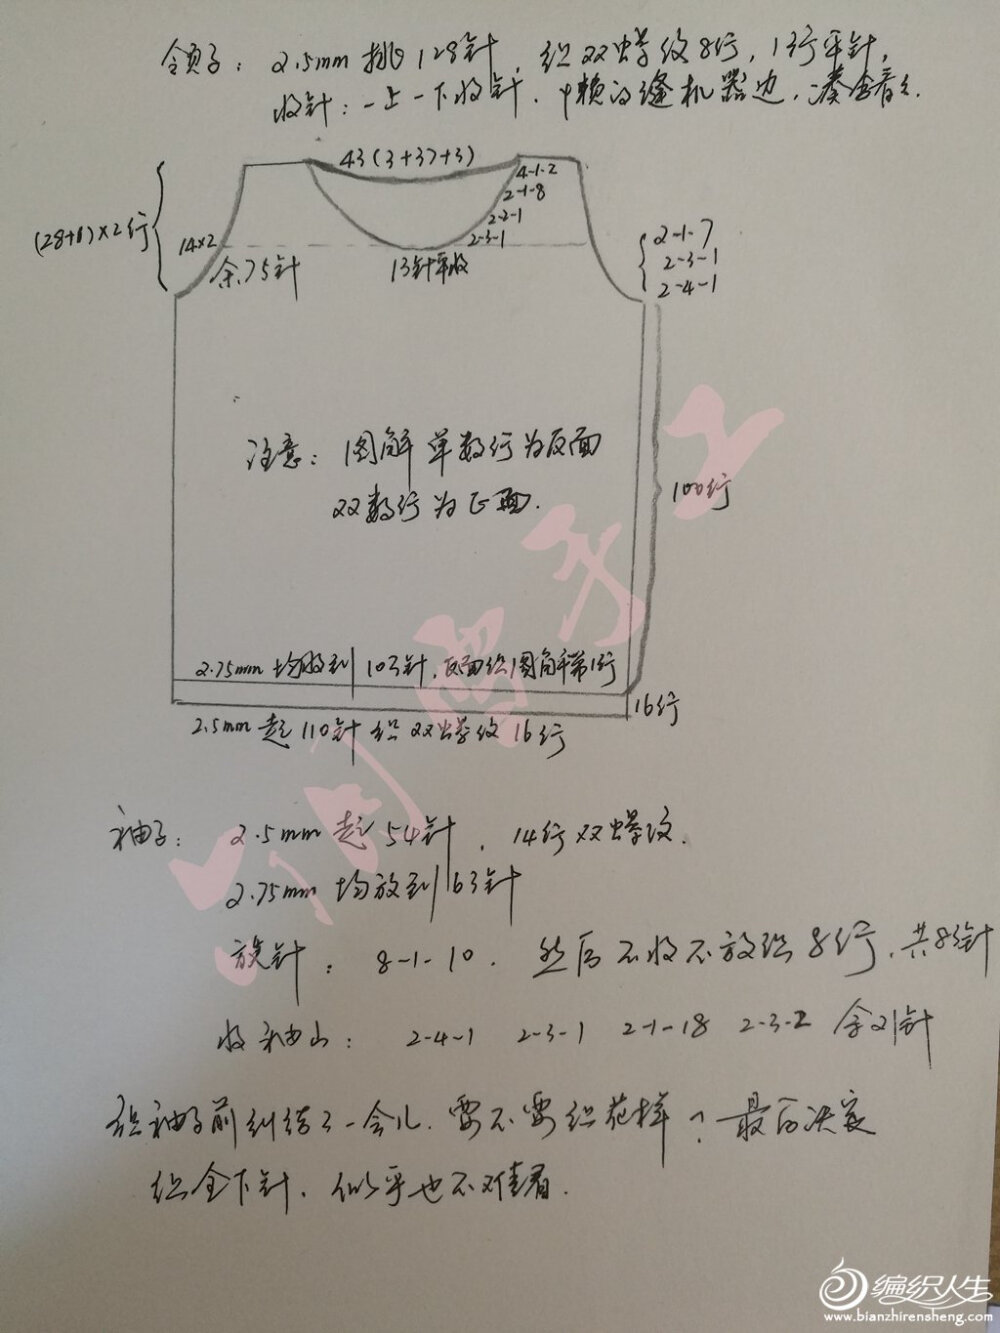 领子: 2.5mm 挑128针, 织双螺纹8行, 1行平针,
收针: 一上一下收针. 懒的缝机器边, 凑合看么.
43(3+37+3)
4-1-2
2-1-8
2-2-1
2-3-1
(28+1)×2行
14×2
余75针
13针平收
2-1-7
2-3-1
2-4-1
注意: 图解单数行为反面
双数行为正面.
100行
2.75mm 均收到103针, 反面织图解第1行
16行
2.5mm 起110针 织双螺纹16行
袖子: 2.5mm 起54针, 14行双螺纹.
2.75mm 均放到63针
放针: 8-1-10. 然后不收不放织8行, 共83针
收袖山: 2-4-1 2-3-1 2-1-18 2-3-2 余21针
织袖子前纠结了一会儿. 要不要织花样? 最后决定
织全下针. 似乎也不难看.
编织人生
www.bianzhirensheng.com